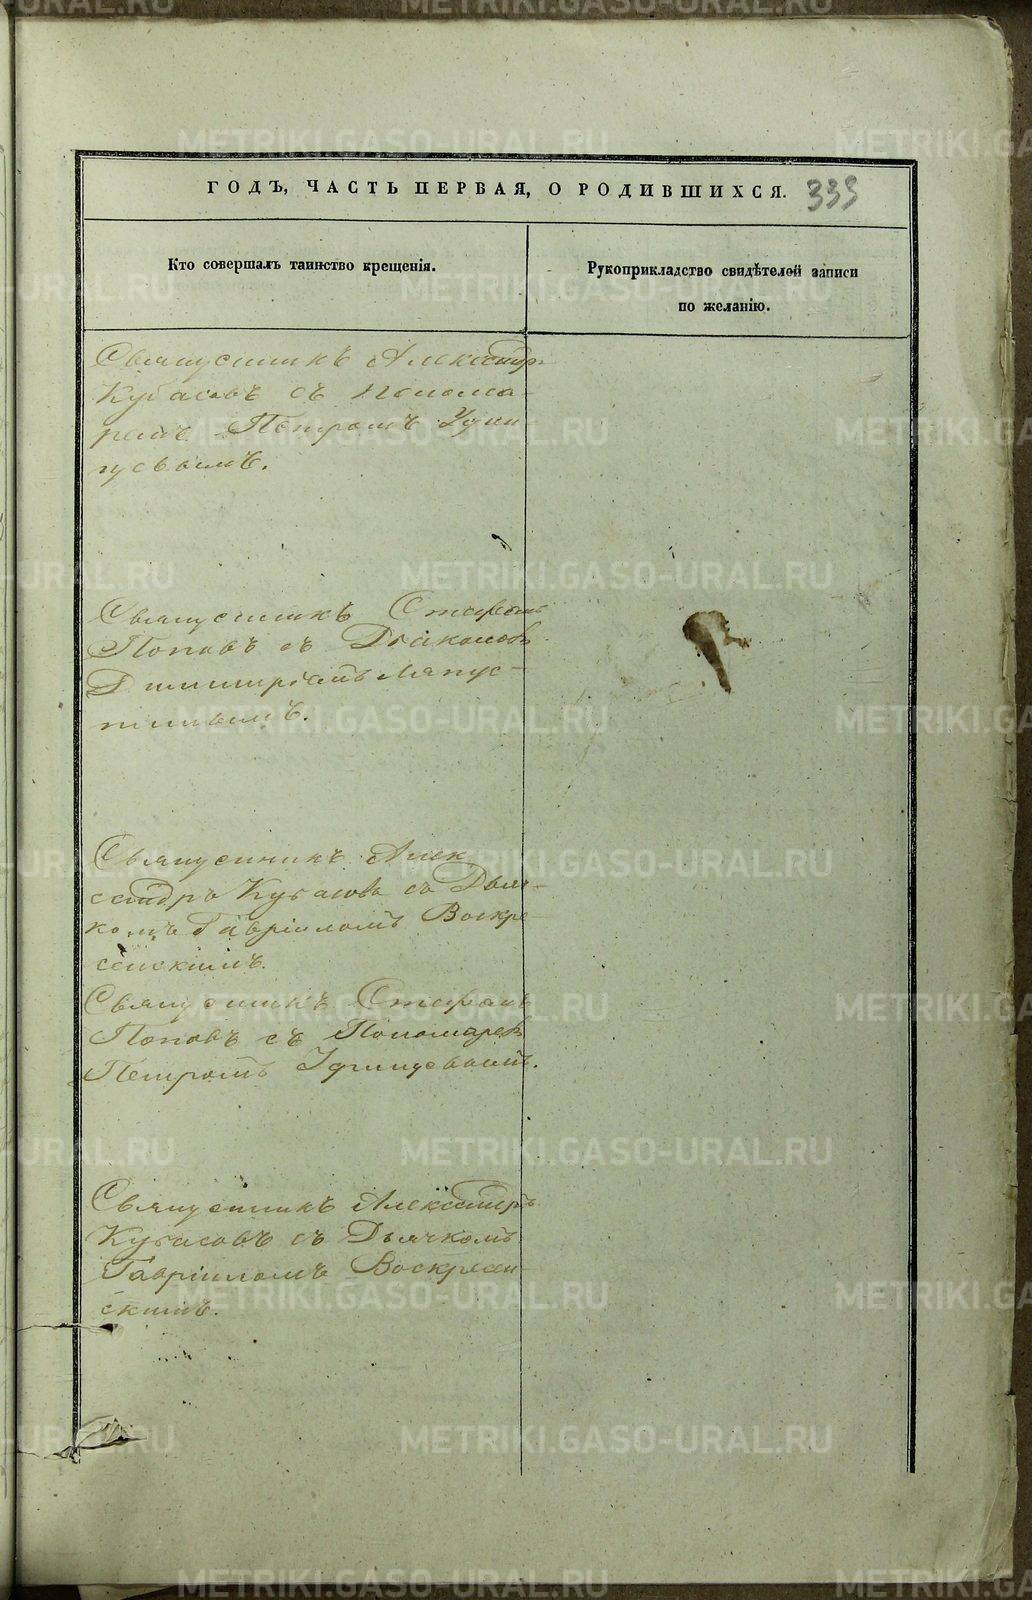 ГОДЪ, ЧАСТЬ ПЕРВАЯ, О РОДИВШИХСЯ. 339
Кто совершалъ таинство крещенія.
Рукоприкладство свидѣтелей записи
по желанію.
Священникъ Александръ
Кубасовъ съ Понома-
ремъ Петромъ Удин-
цовымъ.
Священникъ Стефанъ
Поповъ съ Діакономъ
Димитріемъ Ляпус-
тинымъ.
Священникъ Алек
сандръ Кубасовъ съ Дьяч-
комъ Гавріиломъ Воскре-
сенскимъ.
Священникъ Стефанъ
Поповъ съ Пономаремъ
Петромъ Удинцовымъ.
Священникъ Александръ
Кубасовъ съ Дьячкомъ
Гавріиломъ Воскресен-
скимъ.
METRIKI.GASO-URAL.RU